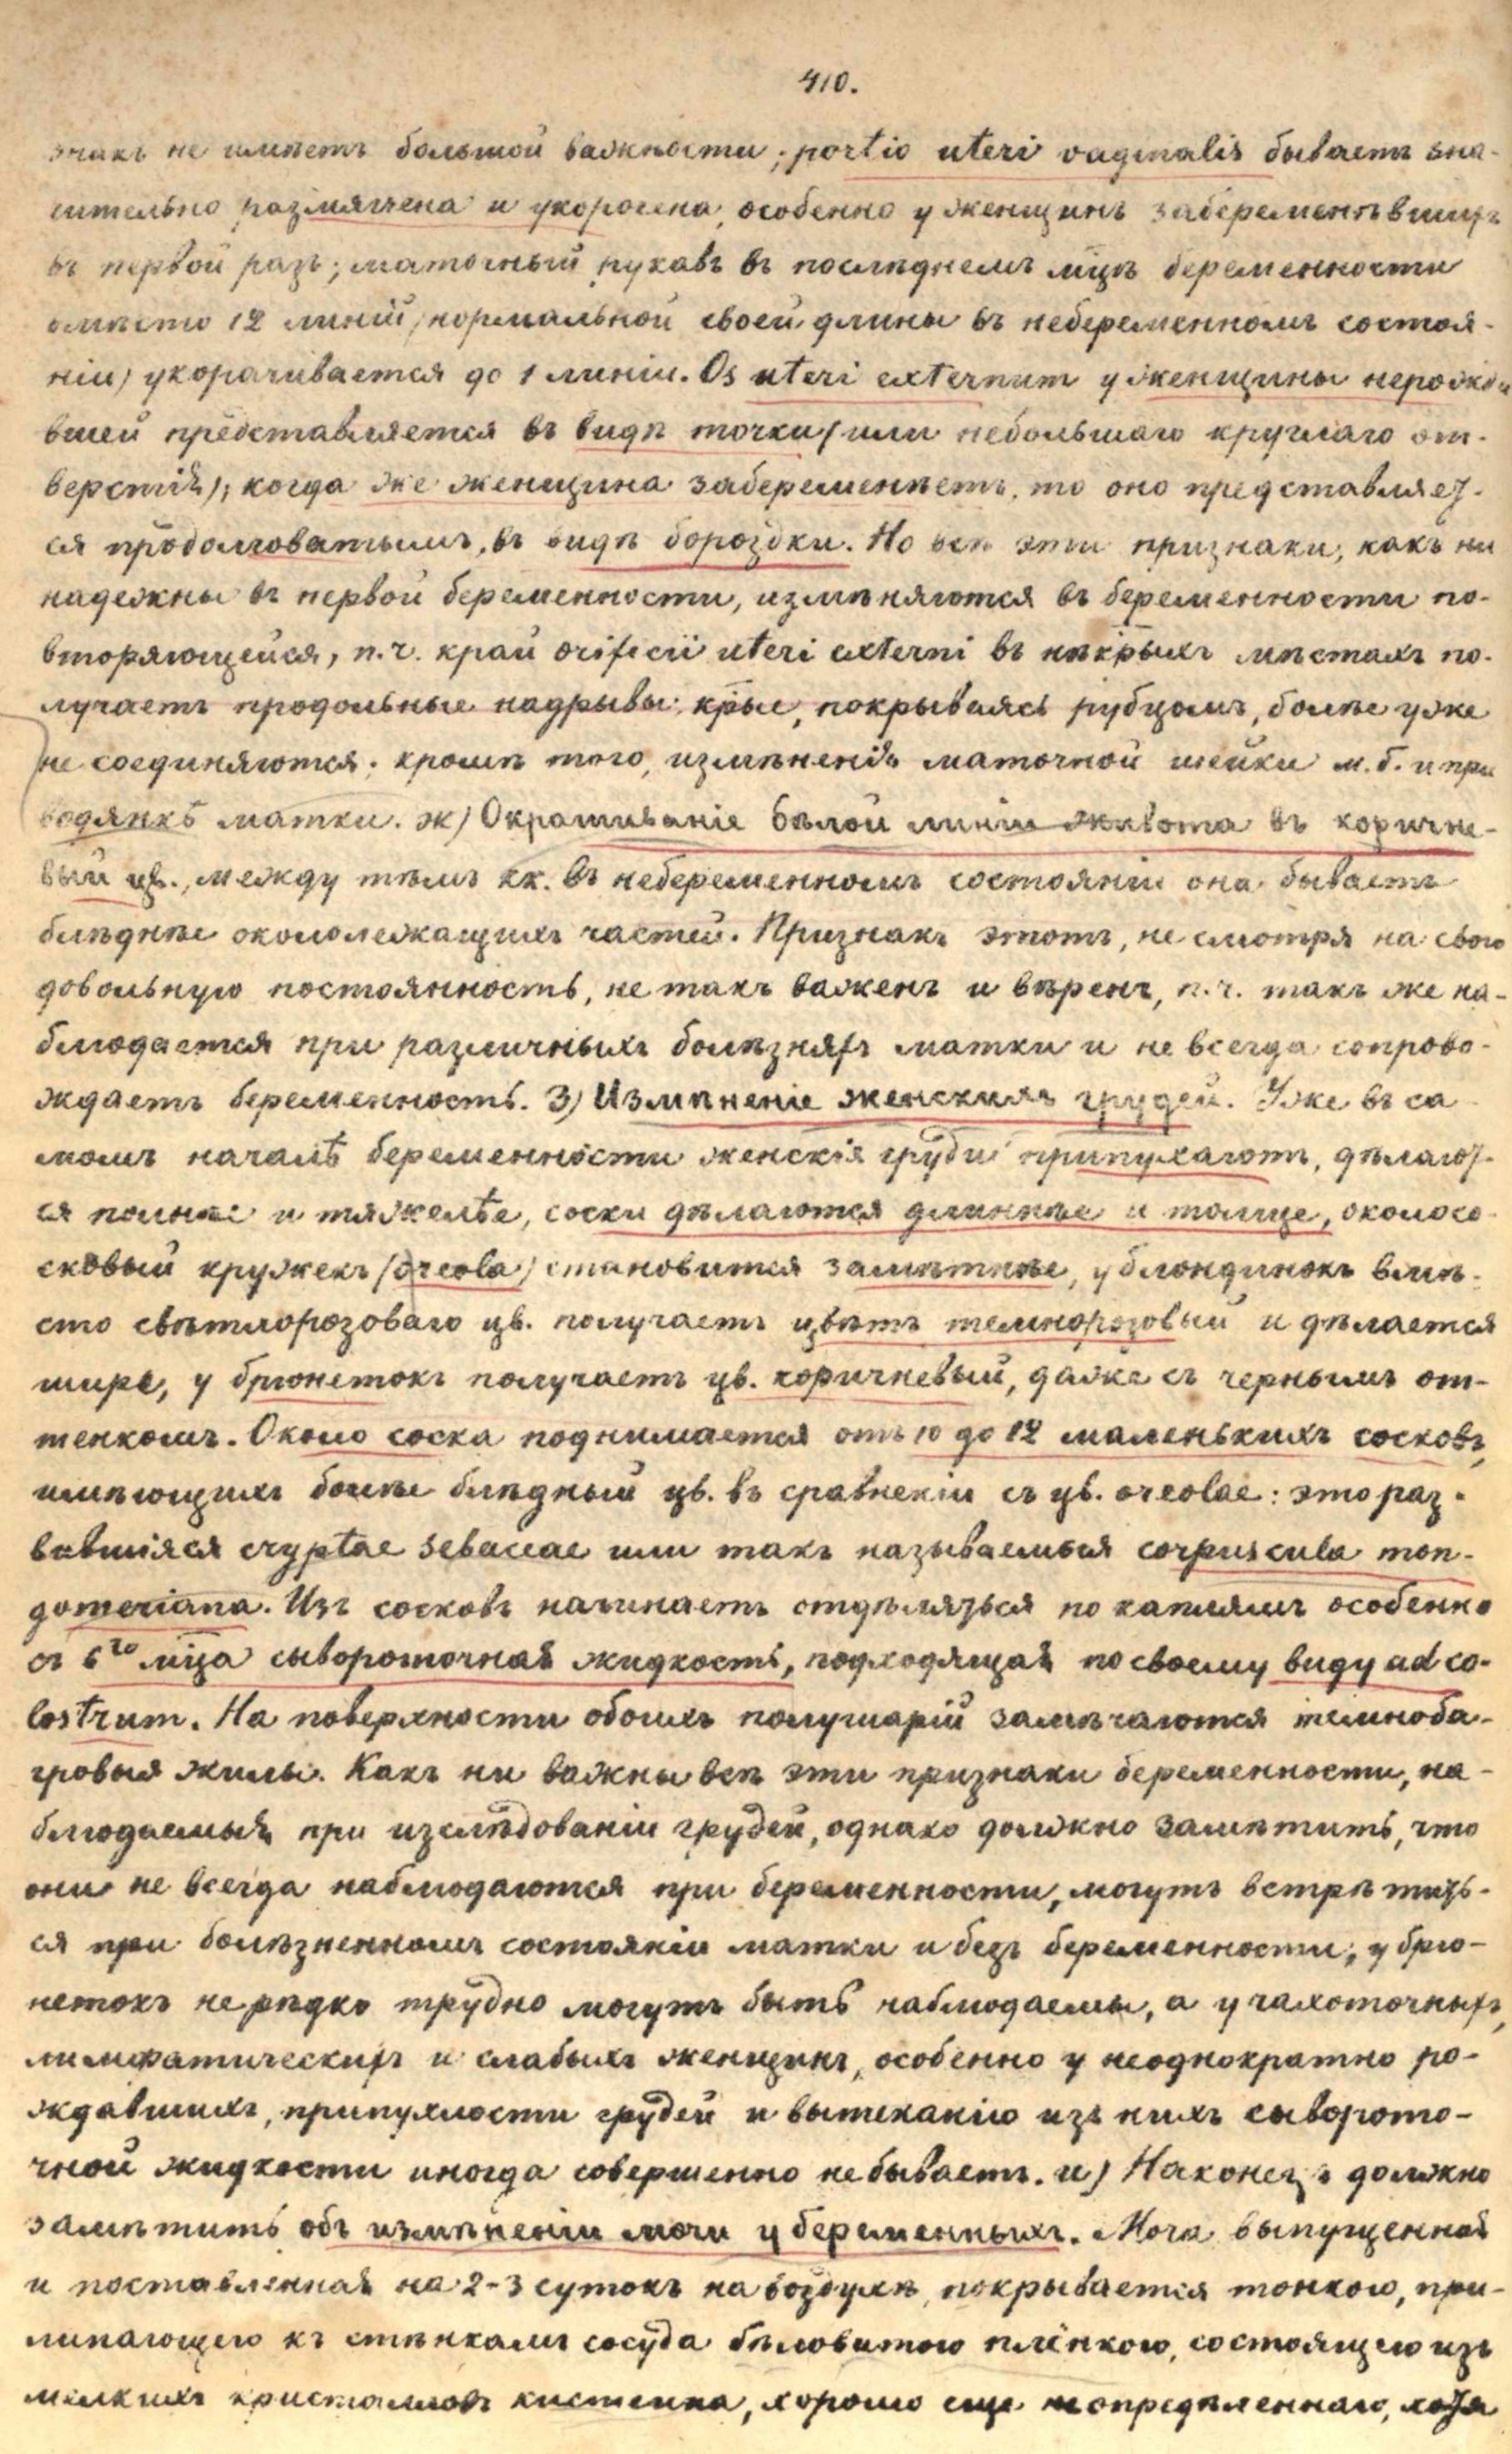 410.
знакъ не имѣетъ большой важности; portio uteri vaginalis бываетъ зна-
чительно размягчена и укорочена, особенно у женщинъ забеременѣвшихъ
въ первой разъ; маточный рукавъ въ послѣднемъ мцѣ беременности
вмѣсто 12 линій (нормальной своей длины въ небеременномъ состоя-
ніи) укорачивается до 1 линіи. Os uteri externum у женщины нерожа
вшей представляется въ видѣ точки (или небольшаго круглаго от-
верстія); когда же женщина забеременѣетъ, то оно представляет-
ся продолговатымъ, въ видѣ бороздки. Но всѣ эти признаки, какъ ни
надежны въ первой беременности, измѣняются въ беременности по-
вторяющейся, п.ч. край orificii uteri externi въ нѣкрыхъ мѣстахъ по-
лучаетъ продольные надрывы, крые, покрываясь рубцомъ, болѣе уже
не соединяются; кромѣ того, измѣненія маточной шейки м.б. и при
водянкѣ матки. ж) Окрашиваніе бѣлой линіи живота въ коричне-
вый цв., между тѣмъ кк. въ небеременномъ состояніи она бываетъ
блѣднѣе окололежащихъ частей. Признакъ этотъ, не смотря на свою
довольную постоянность, не такъ важенъ и вѣренъ, п.ч. такъ же на-
блюдается при различныхъ болѣзняхъ матки и не всегда сопрово-
ждаетъ беременность. З) Измѣненіе женскихъ грудей. Уже въ са
момъ началѣ беременности женскія груди припухаютъ, дѣлают-
ся полнѣе и тяжелѣе, соски дѣлаются длиннѣе и толще, околосо-
сковый кружекъ (areola) становится замѣтнѣе, у блондинокъ вмѣ-
сто свѣтлорозоваго цв. получаетъ цвѣтъ темнорозовый и дѣлается
шире, у брюнетокъ получаетъ цв. коричневый, даже съ чернымъ от-
тенкомъ. Около соска поднимается отъ 10 до 12 маленькихъ сосковъ,
имѣющихъ болѣе блѣдный цв. въ сравненіи съ цв. areolae: это раз-
вившіяся cryptae sebaceae или такъ называемыя corpuscula mon-
gomeriana. Изъ сосковъ начинаетъ отдѣляться по каплямъ особенно
съ 6го мца сывороточная жидкость, подходящая по своему виду ad co-
lostrum. На поверхности обоихъ полушарій замѣчаются темноба-
гровыя жилы. Какъ ни важны всѣ эти признаки беременности, на-
блюдаемыя при изслѣдованіи грудей, однако должно замѣтить, что
они не всегда наблюдаются при беременности, могутъ встрѣтить-
ся при болѣзненномъ состояніи матки и безъ беременности; у брю-
нетокъ нерѣдко трудно могутъ быть наблюдаемы, а у чахоточныхъ,
лимфатическихъ и слабыхъ женщинъ, особенно у неоднократно ро-
ждавшихъ, припухлости грудей и вытеканію изъ нихъ сыворото-
чной жидкости иногда совершенно не бываетъ. и) Наконецъ должно
замѣтить объ измѣненіи мочи у беременныхъ. Моча выпущенная
и поставленная на 2-3 сутокъ на воздухѣ, покрывается тонкою, при-
липающею къ стѣнкамъ сосуда бѣловатою плёнкою, состоящею изъ
мелкихъ кристалловъ кистеина, хорошо еще неопредѣленнаго, хотя